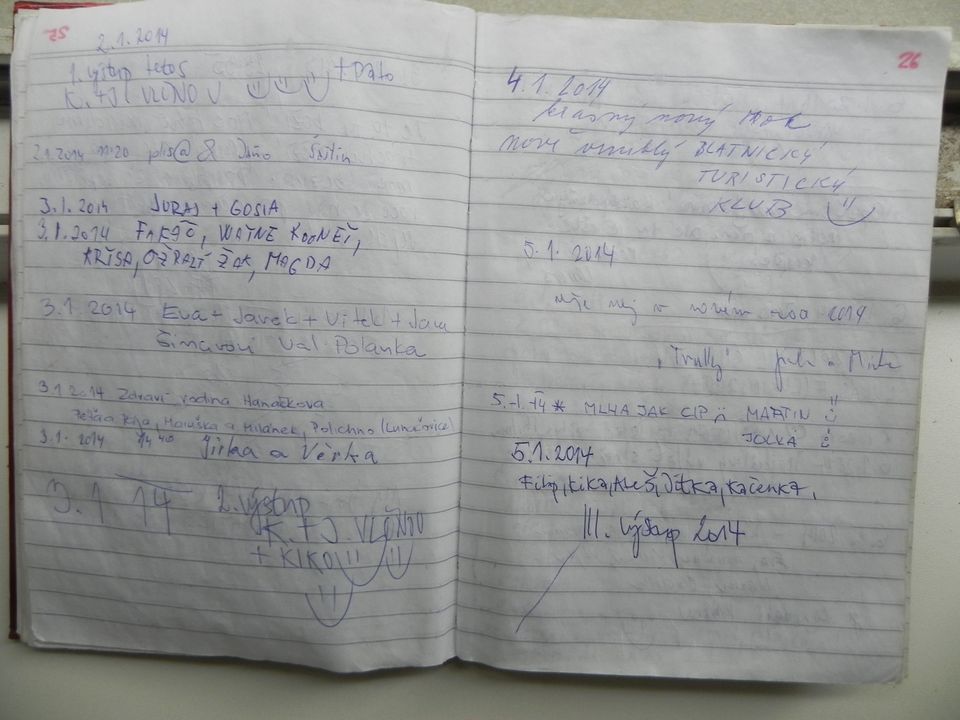 25
2.1.2014
1. výstup letos + Dato
K. + J. VLČNOV
2.1.2014 11:20 plis@ & Štítin
3.1.2014 JURAJ + GOSIA
3.1.2014 FAKÁČ,
KRÝSA, OŽRALÝ ŽAK, MAGDA
3.1 2014 Eva + Jarek + Vítek + Jara
Šimarovi Val. Polanka
3.1 2014 Zdraví rodina Hanáčkova
Maruška a Milánek, Polichno (Luhačovice)
3.1. 2014 14 40 Jirka a Věrka
3.1 14 2. výstup
K. + J. VLČNOV
+ KIKO
26
4.1.2014
krásný nový rok
nově vzniklý BLATNICKÝ
TURISTICKÝ
KLUB
5.1. 2014
v novém roce 2014
5.1.14 * MLHA JAK CIP MARTIN
JOLKA
5.1.2014
Filip, Kika, Aleš, Jitka, Kačenka,
III. výstup 2014